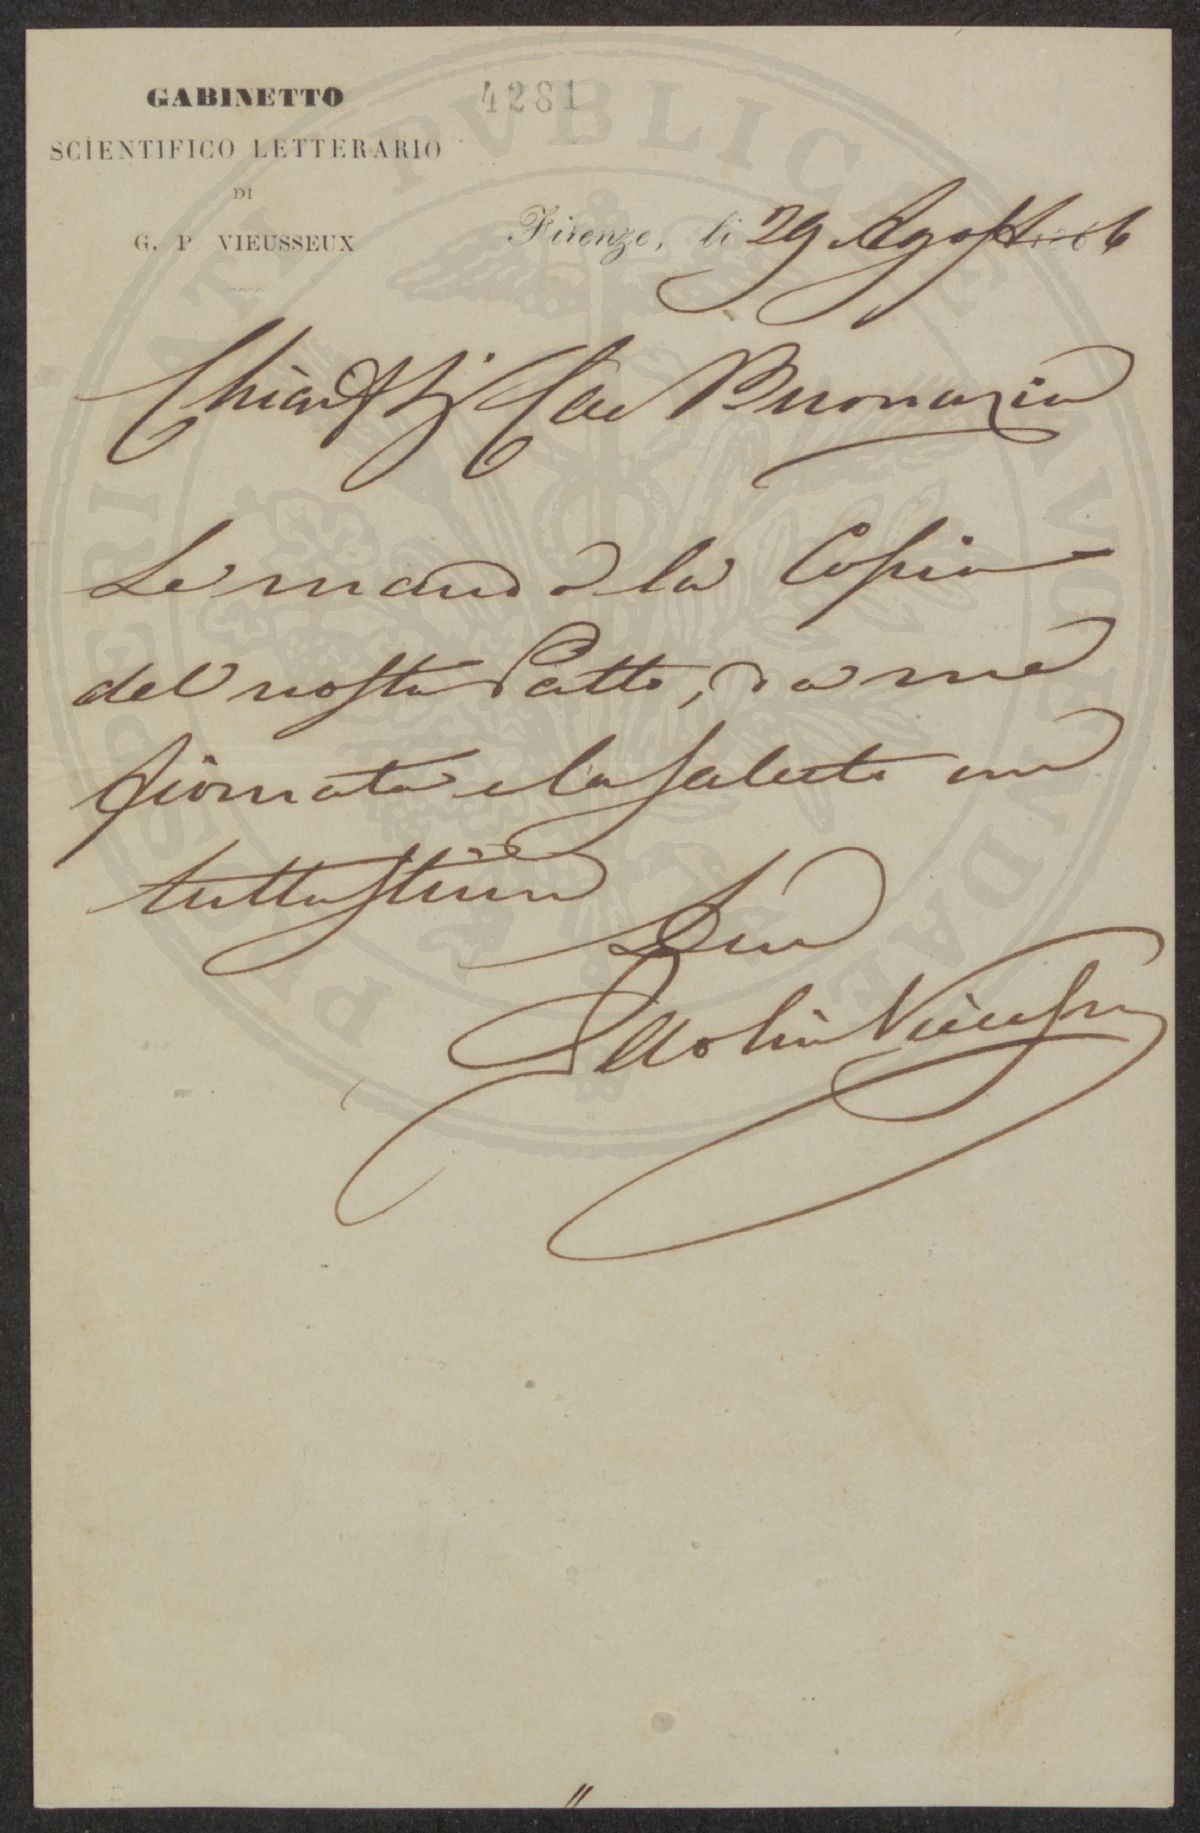 GABINETTO
SCIENTIFICO LETTERARIO
DI
G. P. VIEUSSEUX
4281
Firenze, li 29 Agosto 1866
Cav Buonazia
Le mando la Copia
del nostro Patto, da me
firmata e la saluto con
tutta stima
Suo
Vieusseux
PVBLICAE